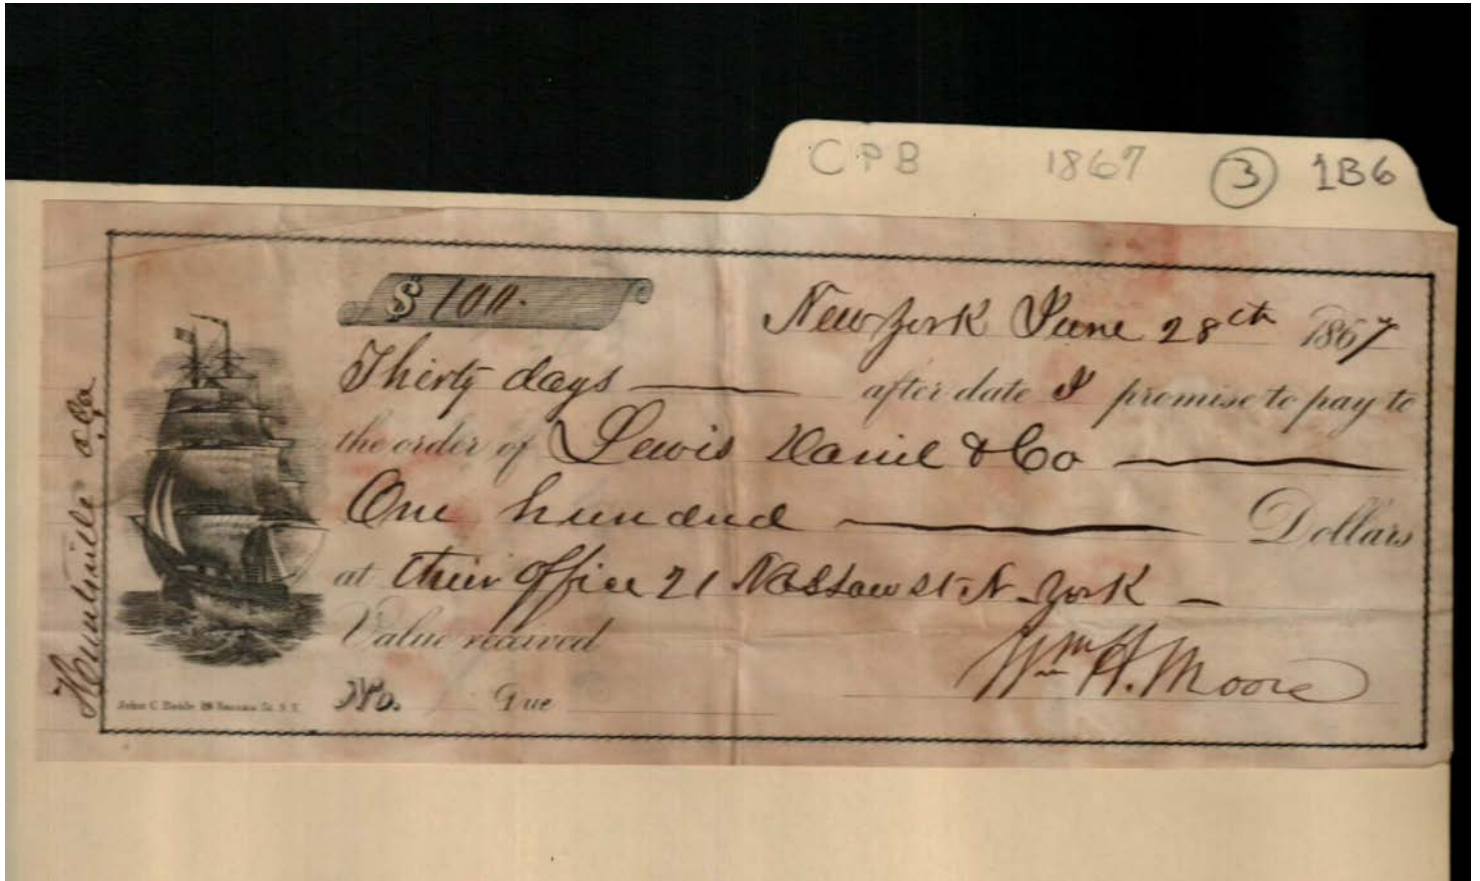 CPB 1867 3 1B6
$ 100.
New York June 28th 1867
Thirty days after date I promise to pay to
the order of Lewis Daniel & Co
One hundred Dollars
at their office 21 Nassau st. N. York
Value received
Wm H. Moore
No. Due
Huntsville ala
John C